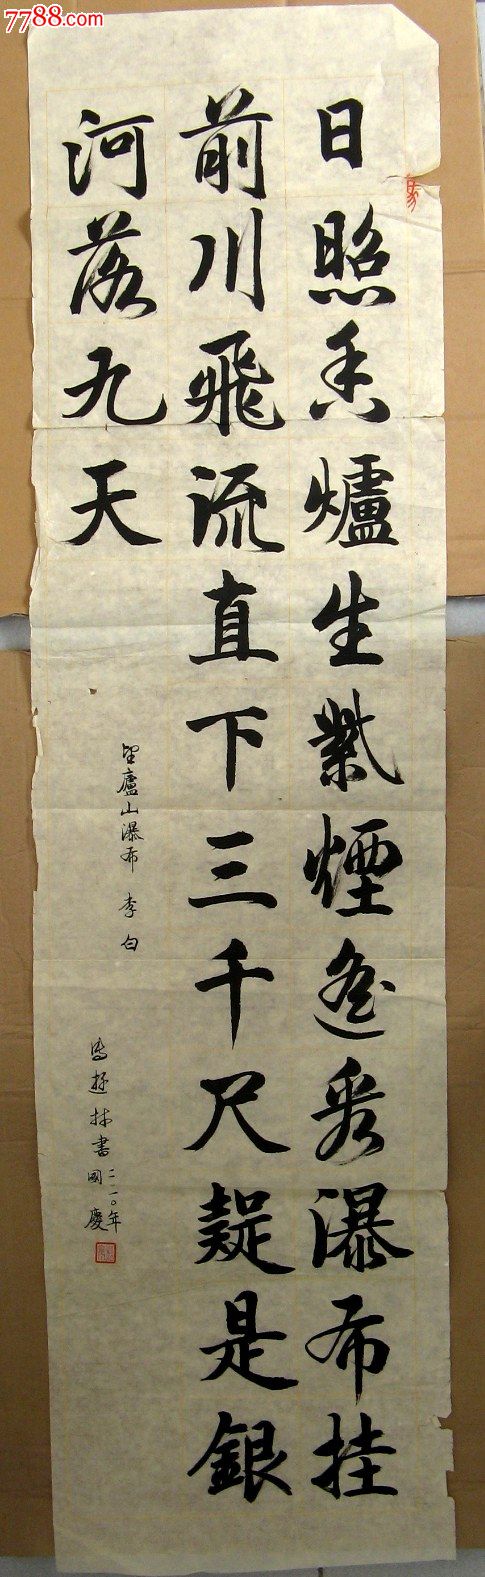 7788.com
日照香爐生紫煙遙看瀑布挂
前川飛流直下三千尺疑是銀
河落九天
望廬山瀑布 李白
林書國慶
年